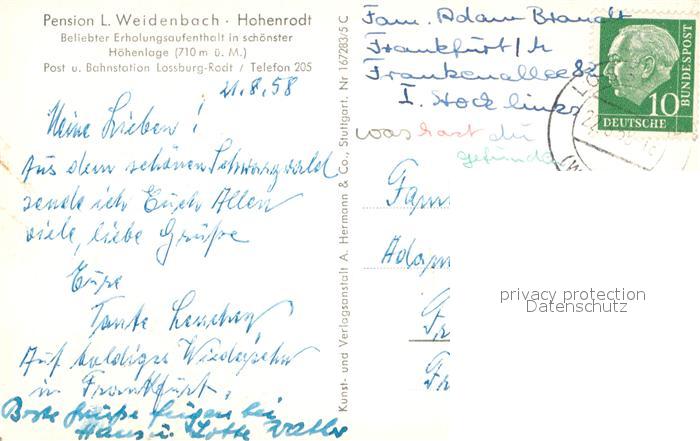 Pension L. Weidenbach · Hohenrodt
Beliebter Erholungsaufenthalt in schönster
Höhenlage (710 m ü. M.)
Post u. Bahnstation Lossburg-Rodt / Telefon 205
21.8.58
Meine Lieben!
Aus dem schönen Schwarzwald
sende ich Euch Allen
viele, liebe Grüße
Eure
Tante
Auf baldiges Wiedersehn
in Frankfurt.
Beste Grüße fügen bei
Hans u. Lotte
Kunst- und Verlagsanstalt A. Hermann & Co., Stuttgart. Nr 167283/5 C
Fam. Adam Brandt
Frankfurt/M
Frankenallee
I. Stock links
was hast du
gefunden
10
DEUTSCHE BUNDESPOST
Fam
Adam
Fr
Fr
privacy protection
Datenschutz